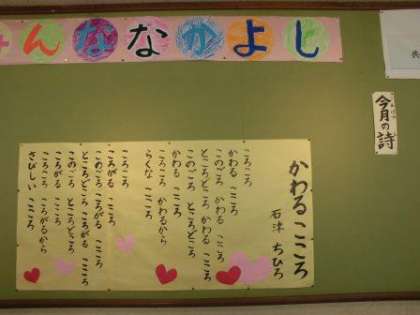 みんななかよし
今月の詩
かわる こころ
石津 ちひろ
ころころ
かわる こころ
このごろ かわる こころ
ところどころ かわる こころ
このごろ ところどころ
かわる こころ
ころころ かわるから
らくな こころ
ころころ
ころがる こころ
このごろ ころがる こころ
ところどころ ころがる こころ
このごろ ところどころ
ころがる こころ
ころころ ころがるから
さびしい こころ